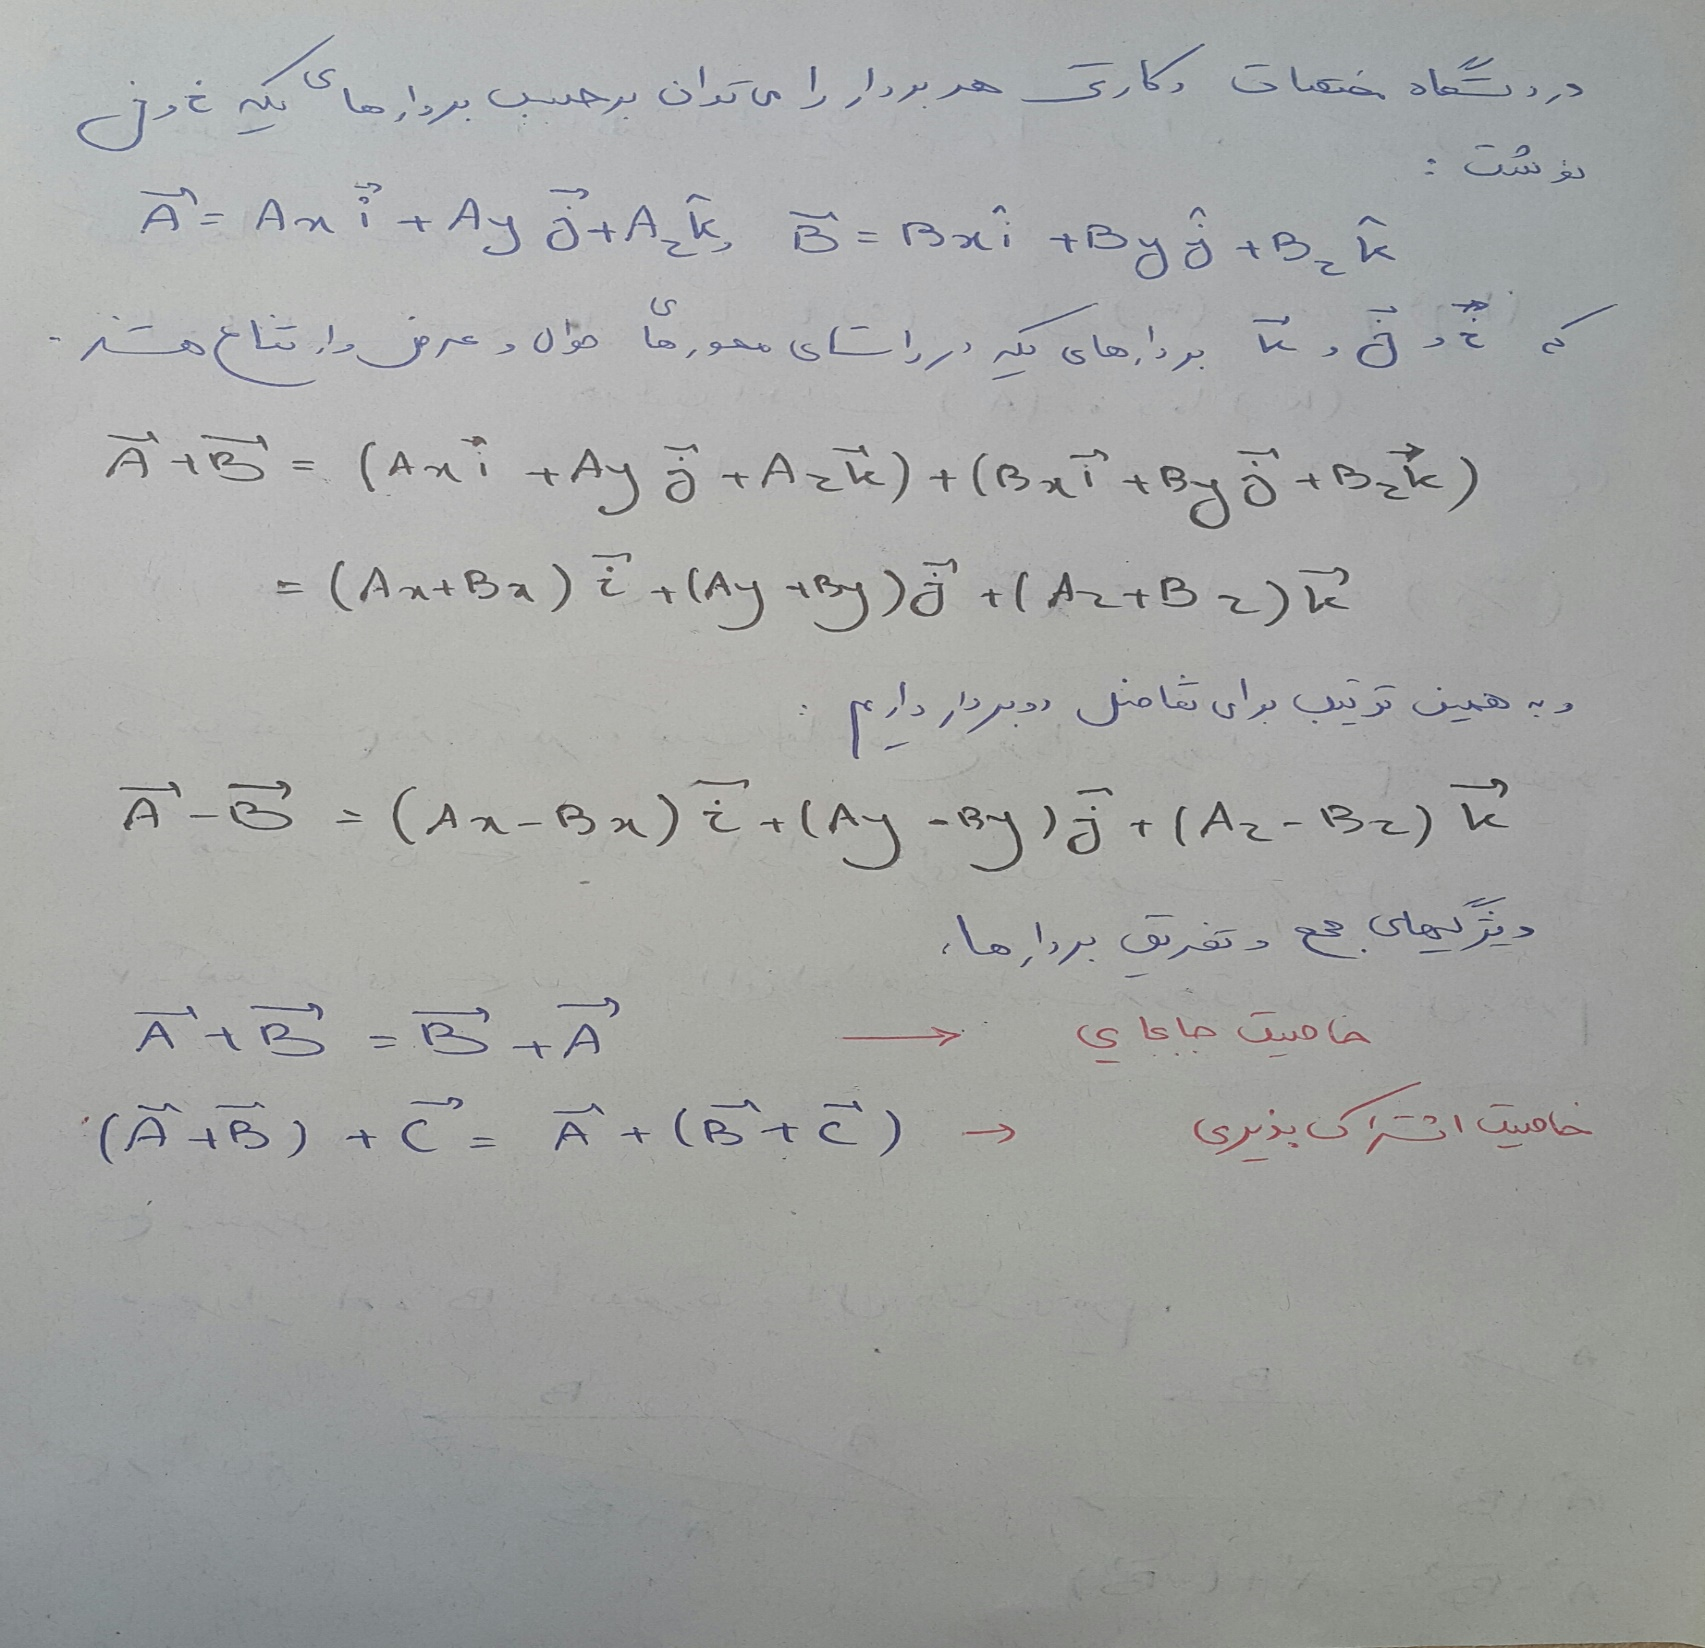 در دستگاه مختصات دکارتی هر بردار را می توان برحسب بردارهای یکه i و j
نوشت :
A⃗ = Ax i⃗ + Ay j⃗ + Az k̂, B⃗ = Bx î + By ĵ + Bz k̂
که i⃗ و j⃗ و k⃗ بردارهای یکه در راستای محورهای طول و عرض و ارتفاع هستند.
A⃗ + B⃗ = (Ax i⃗ + Ay j⃗ + Az k⃗) + (Bx i⃗ + By j⃗ + Bz k⃗)
= (Ax + Bx) i⃗ + (Ay + By) j⃗ + (Az + Bz) k⃗
و به همین ترتیب برای تفاضل دو بردار داریم :
A⃗ - B⃗ = (Ax - Bx) i⃗ + (Ay - By) j⃗ + (Az - Bz) k⃗
ویژگیهای جمع و تفریق بردارها:
A⃗ + B⃗ = B⃗ + A⃗ → خاصیت جابجایی
(A⃗ + B⃗) + C⃗ = A⃗ + (B⃗ + C⃗) → خاصیت اشتراک پذیری